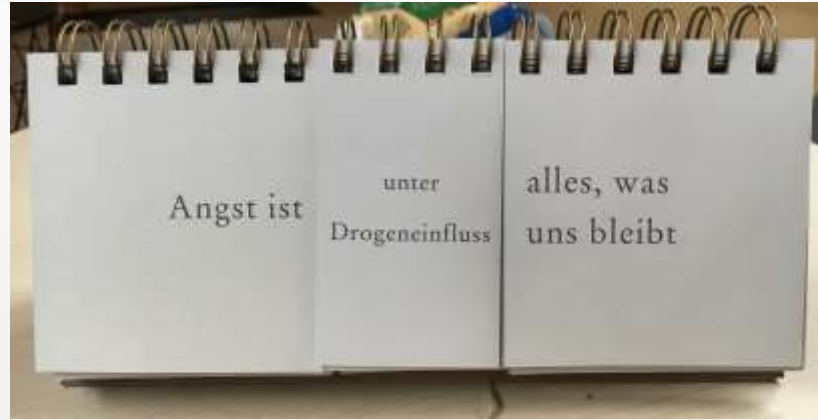 Angst ist
unter
Drogeneinfluss
alles, was
uns bleibt